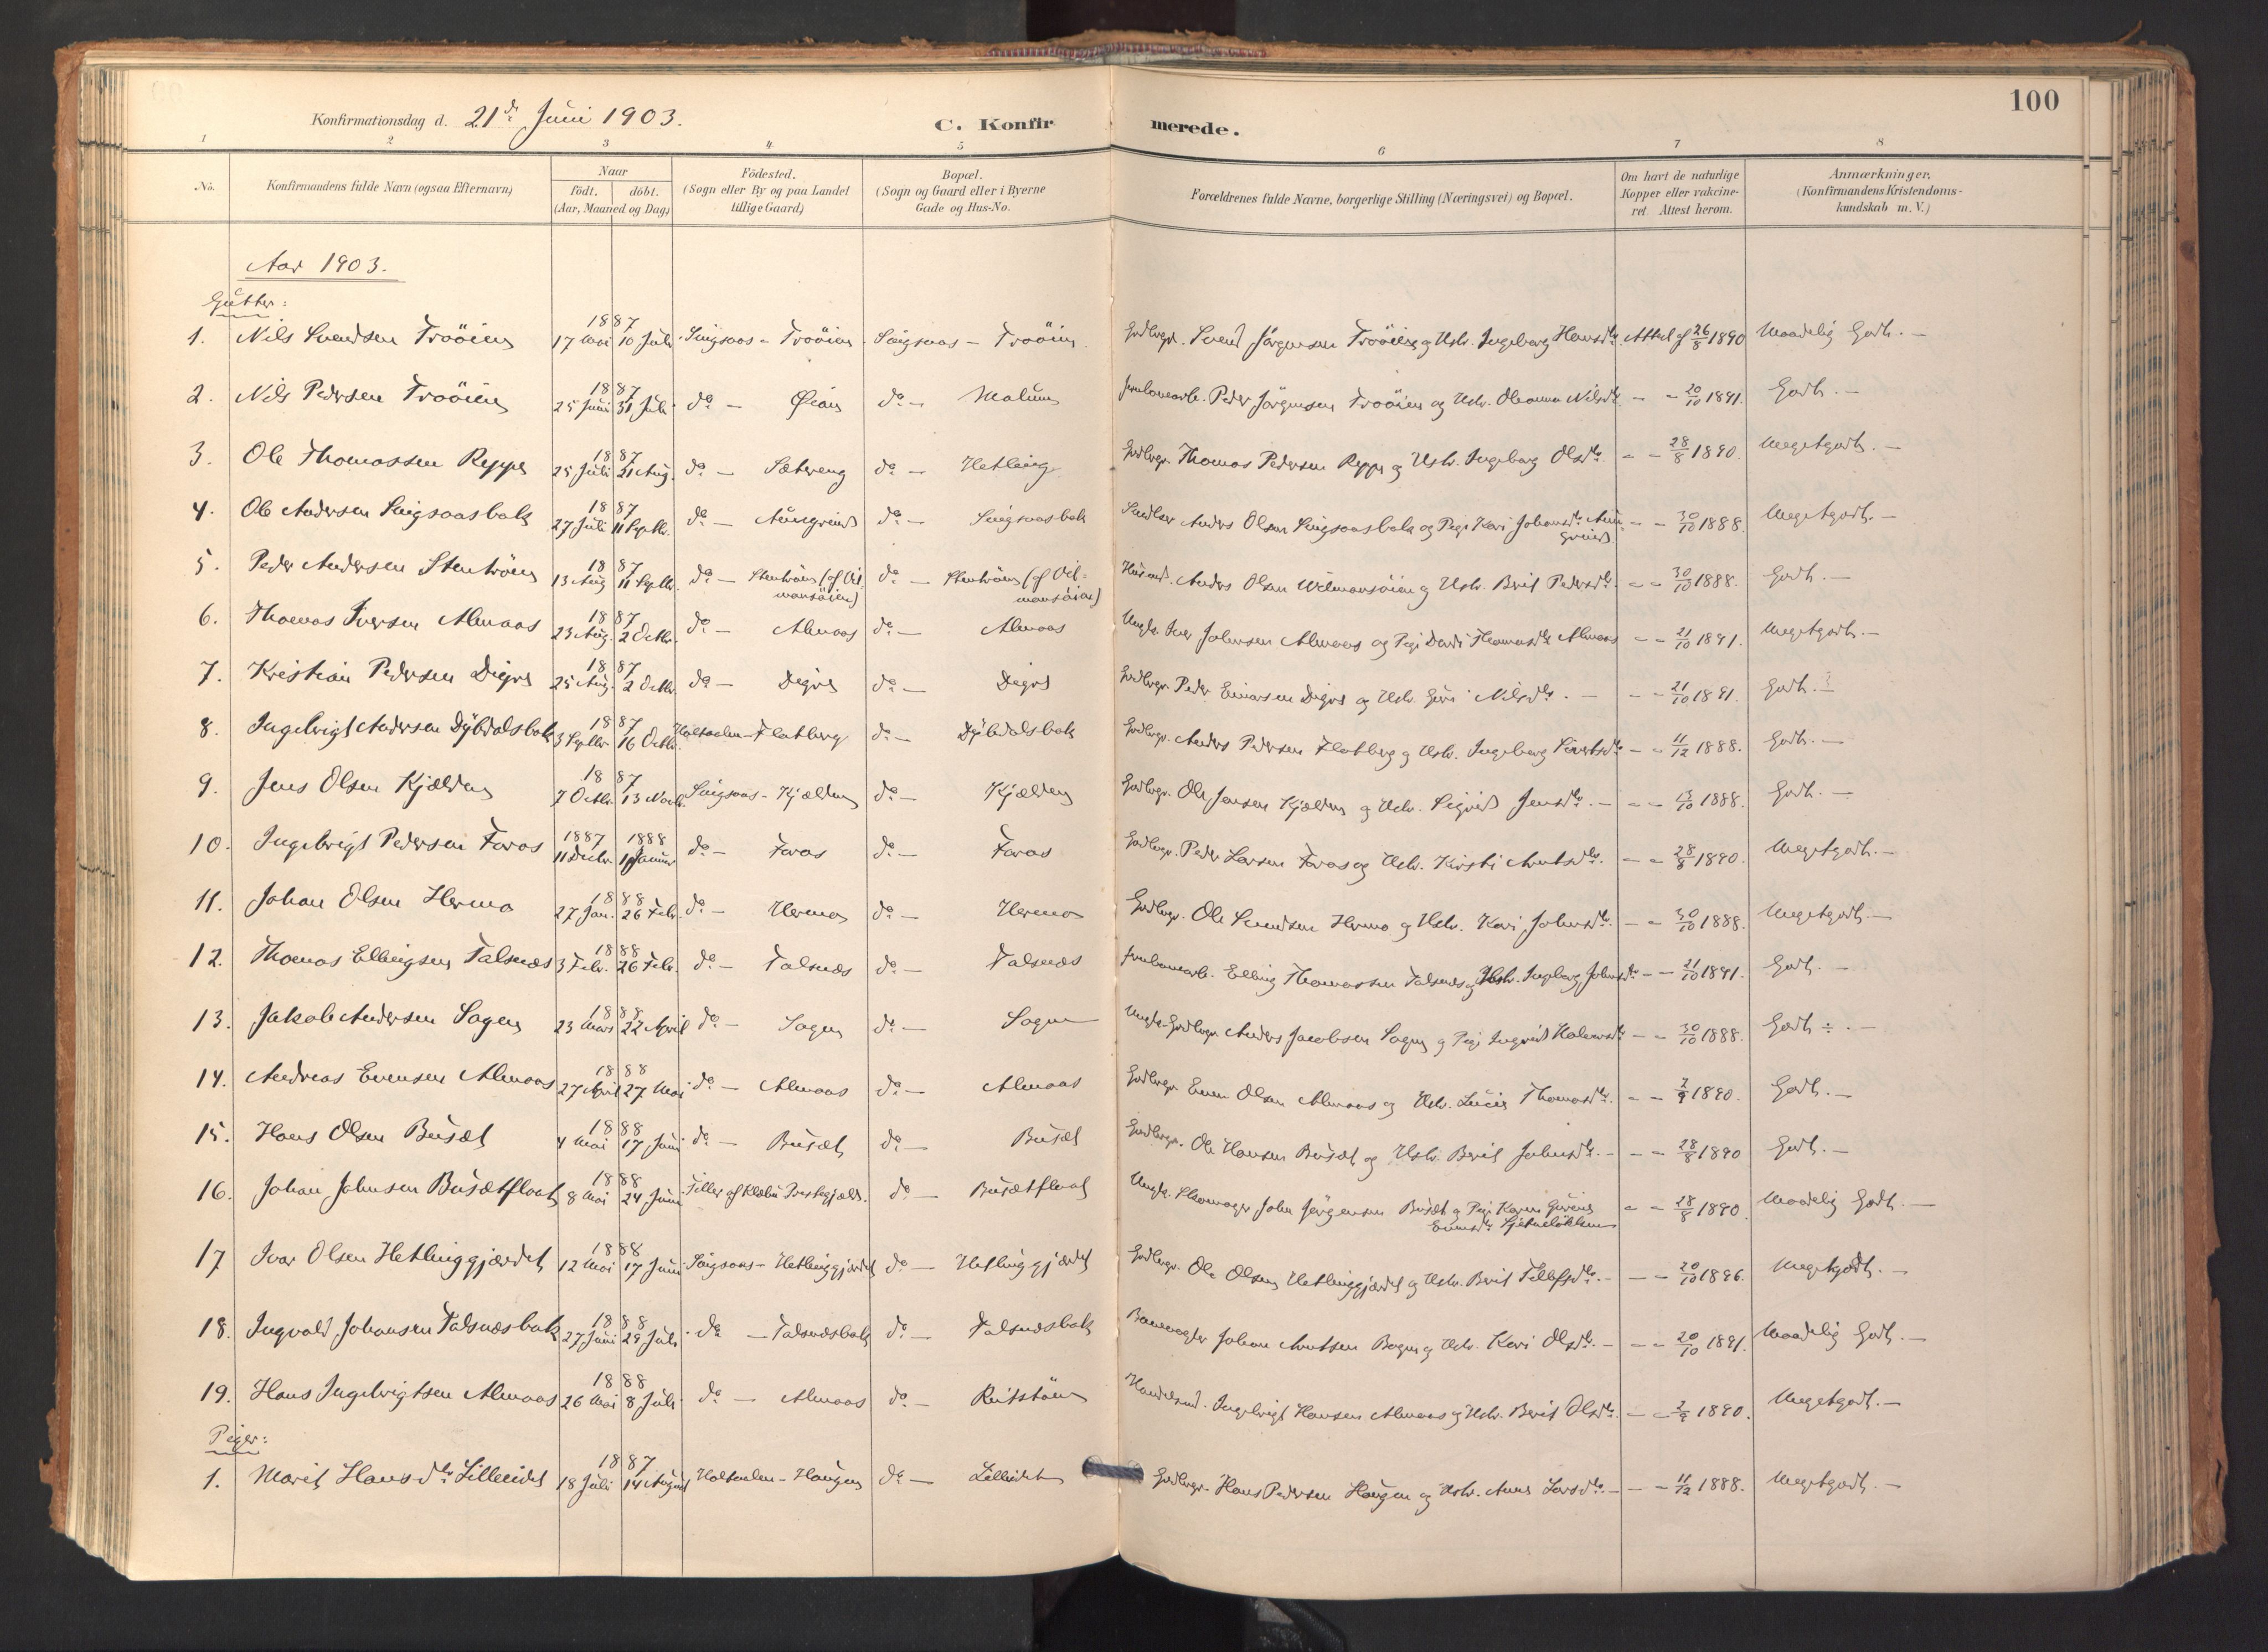 100
Konfirmationsdag d. 21de Juni 1903.
C. Konfirmerede.
1 2 3 4 5 6 7 8
No. Konfirmandens fulde Navn (ogsaa Efternavn) Naar födt. döbt. (Aar, Maaned og Dag) Födested. (Sogn eller By og paa Landet tillige Gaard) Bopæl. (Sogn og Gaard eller i Byerne Gade og Hus-No. Forældrenes fulde Navne, borgerlige Stilling (Næringsvei) og Bopæl. Om havt de naturlige Kopper eller vakcineret. Attest herom. Anmærkninger. (Konfirmandens Kristendomskundskab m. V.)
Aar 1903.
Gutter:
1. Nils Svendsen Troöien 1887 17 Mai 10 Juli Singsaas - Troöien Singsaas - Troöien Gaardbrgr. Svend Jörgensen Troöien og Hstr. Ingeborg Hansdtr. Attest af 26/8 1890 Maadelig Godt. -
2. Nils Pedersen Troöien 1887 25 Juni 31 Juli do - Öien do - Malum Jernbanearb. Peder Jörgensen Troöien og Hstr. Oleanna Nilsdtr. - - 20/10 1891. Godt. -
3. Ole Thomassen Reppe 1887 25 Juli 21 Aug. do - Sætereng do - Hetling Gaardbrgr. Thomas Pedersen Reppe og Hstr. Ingeborg Olsdtr. - - 28/8 1890. Megetgodt. -
4. Ole Andersen Singsaasbak 1887 27 Juli 11 Septbr. do - Aungrind do - Singsaasbak Anders Olsen Singsaasbak og Pige Kari Johansdtr. Aungrind. - - 30/10 1888. Megetgodt. -
5. Peder Andersen Stentröen 1887 13 Aug. 11 Septbr. do - Stentröen (af Vilmansöien) do - Stentröen (af Vilmansöien) Husmd. Anders Olsen Wilmansöien og Hstr. Berit Pedersdtr. - - 30/10 1888. Godt. -
6. Thomas Iversen Almaas 1887 23 Aug. 2 Octbr. do - Almaas do - Almaas Ungk. Iver Johnsen Almaas og Pige Dordi Thomasdtr. Almaas - - 21/10 1891. Megetgodt. -
7. Kristian Pedersen Digre 1887 25 Aug. 2 Octbr. do - Digre do - Digre Gaardbrgr. Peder Einarsen Digre og Hstr. Guri Nilsdtr. - - - 21/10 1891. Godt. -
8. Ingebrigt Andersen Dybdalsbak 1887 3 Septbr. 16 Octbr. Holtaalen - Flatberg do - Dybdalsbak Gaardbrgr. Anders Pedersen Flatberg og Hstr. Ingeborg Sivertsdtr. - - 11/12 1888. Godt. -
9. Jens Olsen Kjælden 1887 7 Octbr. 13 Novbr. Singsaas - Kjælden do - Kjælden Gaardbrgr. Ole Jensen Kjælden og Hstr. Sigrid Jensdtr. - - - 13/10 1888. Godt. -
10. Ingebrigt Pedersen Foros 1887 11 Decbr. 1888 1 Januar do - Foros do - Foros Gaardbrgr. Peder Larsen Foros og Hstr. Kirsti Arntsdtr. - - 28/8 1890. Megetgodt. -
11. Johan Olsen Hermo 1888 27 Jan. 26 Febr. do - Hermo do - Hermo Gaardbrgr. Ole Svendsen Hermo og Hstr. Kari Johnsdtr. - - 30/10 1888. Megetgodt. -
12. Thomas Ellingsen Talsnæs 1888 3 Febr. 26 Febr. do - Talsnæs do - Talsnæs Jernbanearb. Elling Thomassen Talsnæs og Hstr. Ingeborg Johnsdtr. - - 21/10 1891. Godt. -
13. Jakob Andersen Sagen 1888 23 Mars 22 April do - Sagen do - Sagen Ungk. Gaardbrgr. Anders Jacobsen Sagen og Pige Ingrid - - 30/10 1888. Godt ÷. -
14. Andreas Evensen Almaas 1888 27 April 27 Mai do - Almaas do - Almaas Gaardbrgr. Even Olsen Almaas og Hstr. Lucie Thomasdtr. - - 2/9 1890. Godt. -
15. Hans Olsen Busæt 1888 4 Mai 17 Juni do - Busæt do - Busæt Gaardbrgr. Ole Hansen Busæt og Hstr. Berit Johnsdtr. - - - 28/8 1890 Godt. -
16. Johan Johnsen Busætfloat 1888 8 Mai 24 Juni Tiller af Klæbu Prestegjæld. do - Busætfloat Ungk. Skomager John Jörgensen Busæt og Pige Karen - - 28/8 1890. Maadelig Godt. -
17 Ivar Olsen Hetlinggjærdet 1888 12 Mai 17 Juni Singsaas - Hetlinggjærdet do - Hetlinggjærdet Gaardbrgr. Ole Olsen Hetlinggjærdet og Hstr. Berit - - - 20/10 1896. Megetgodt. -
18. Ingvald Johansen Talsnæsbak 1888 27 Juni 29 Juli do - Talsnæsbak do - Talsnæsbak Banevogter Johan Arntsen Bogen og Hstr. Kari Olsdtr. - - - 20/10 1891. Maadelig Godt. -
19. Hans Ingebrigtsen Almaas 1888 26 Mai 8 Juli do - Almaas do - Handelsmd. Ingebrigt Hansen Almaas og Hstr. Berit Olsdtr. - - 2/9 1890. Megetgodt. -
Piger:
1. Marit Hansdtr. Lilleeidet 1887 18 Juli 14 August Holtaalen - Haugen do - Lilleeidet Gaardbrgr. Hans Pedersen Haugen og Hstr. Anne Larsdtr. - - - 11/12 1888. Megetgodt. -